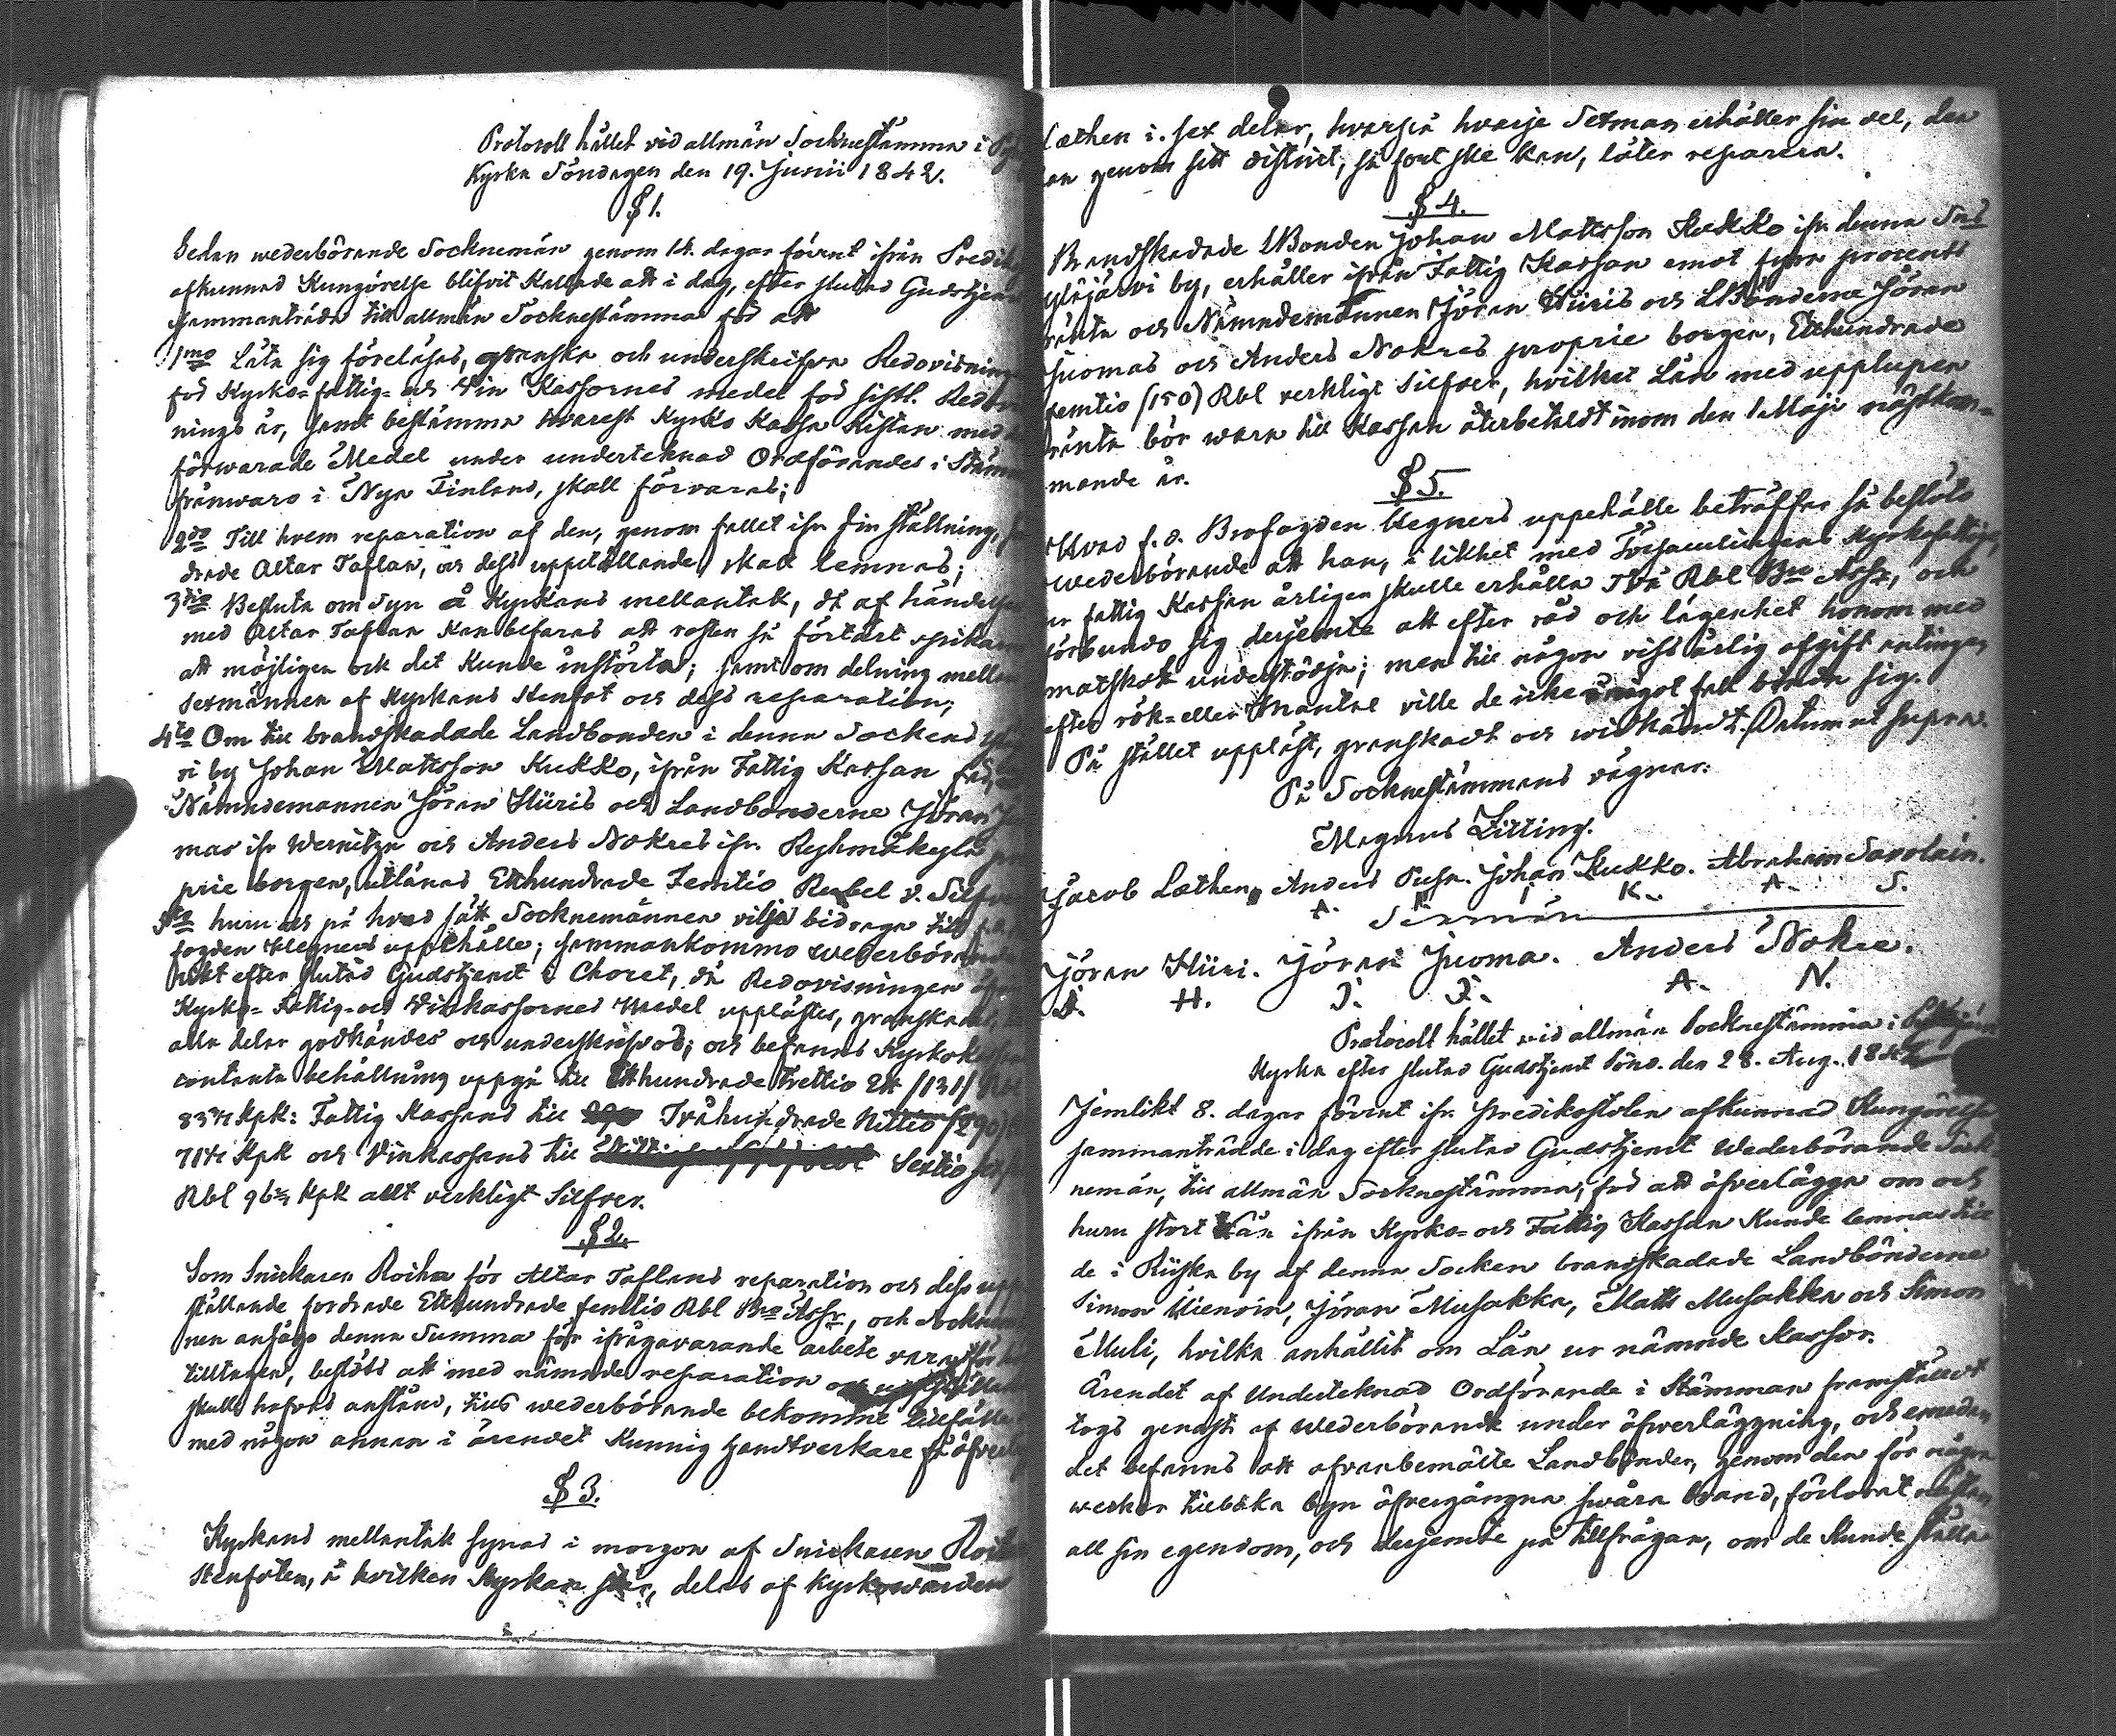 Protocoll hållet vid allmän Socknestämma i
Kyrka Söndagen den 19. Junii 1842.
§ 1.
Sedan wederbörande Socknemän genom 14. dagar förent ifrån
afkunnad Kungörelse blifvit Kallade att i dag, efter slutad
sammanträda till allmän Socknestämma för att
1mo Låta sig föreläsas, granska och underskrifva
för Kyrko- fattig- och Vin Kassornes medel för sistl.
nings år, samt bestämma hvarest Kyrko Kassa Kistan
förwarade Medel under undertecknad Ordförandes i
frånwaro i Nya Finland, skall förvaras;
2do Till hvem reparation af den, genom fallet ifr. sin ställning,
drade Altar Taflan, och dess uppställande, skall lemnas;
3tio Besluta om Syn å Kyrkans mellantak, då af händelsen
med Altar Taflan Kan befaras att rosten så förtärt spikarne
att möjligen ock det Kunde instörta; samt om delning mellan
sexmännen af Kyrkans stenfot och dess reparation;
4to Om till brandskadade Landbonden i denna Sockens
vi by Johan Mattsson Kukko, ifrån Fattig Kassan
Nämndemannen Jöran Hiiris och Landbönderne Jöran
mas ifr. Wernitza och Anders Nokres ifr. Reyhmäkylä
prie borgen, utlånas Etthundrade Femtio Rubel v.
5to huru och på hvad sätt Socknemännen vilja bidraga till
fogden Wegners uppehälle; sammankommo wederbörande
rikt efter slutad Gudstjenst i Choret, då Redovisningen
Kyrko- Fattig- och Vinkassornes Medel upplästes, granskades,
alla delar godkändes och underskrifvos; och befanns
contanta behållning uppgå till Etthundrade Trettio Ett (131)
Kpk: Fattig Kassans till Tvåhundrade Nittio (290)
Kpk och Vinkassans till Sextio
Rbl Kpk allt verkligt Silfver.
§ 2.
Som Snickaren Roiha för Altar Taflans reparation och dess
ställande fordrade Etthundrade femtio Rbl Bco Assr, och
nen ansågo denna Summa för ifrågavarande arbete
tilltagen, beslöts att med nämnde reparation
skulle hafvas anstånd, tills wederbörande bekomme
med någon annan i ärendet Kunnig handtverkare
§ 3.
Kyrkans mellantak synas i morgon af Snickaren
Stenfoten, å hvilken Kyrkan står, delas af Kyrkowärden
Læthen i sex delar, hvarpå hvarje Sexman erhåller sin del, den
han genom sitt district, så fort ske kan, låter reparera.
§ 4.
Brandskadade LBonden Johan Mattsson Kukko ifr. denna Sns
yläjärvi by, erhåller ifrån Fattig Kassan emot fyra procents
ränta och Nämndemannen Jöran Hiiris och LBönderne Jöran
Juomas och Anders Nokres proprie borgen, Etthundrade
femtio (150) Rbl verkligt Silfver, hvilket Lån med upplupen
ränta bör wara till Kassan återbetaldt inom den 1 Maji nästkom-
mande år.
§ 5.
Hvad f.d. Brofogden Wegners uppehälle beträffar så beslöto
Wederbörande att han, i likhet med Församlingens Kyrkofattige,
ur fattig Kassan årligen skulle erhålla Två Rbl Bco Assr, och
förbundo sig derjemte att efter råd och lägenhet honom med
matskott understödja; men till någon viss årlig afgift antingen
efter rök- eller Mantal ville de icke i något fall binda sig.
På stället uppläst, granskadt och widkändt. Datum ut supra.
På Socknestämmans vägnar:
Magnus Zitting.
Jacob Læthen, Anders Pusa. Johan Kukko. Abraham Savolain.
A. P. J. K. A. S.
Sexmän
Jöran Hiiri. Jöran Juoma. Anders Nokre.
J. H. J. J. A. N.
Protocoll hållet vid allmän Socknestämma i
Kyrka efter slutad Gudstjenst Sönd. den 28. Aug. 1842
Jemlikt 8. dagar förent ifr. predikostolen afkunnad Kungörelse
sammanträdde i dag efter slutad Gudstjenst Wederbörande Sock-
nemän, till allmän Socknestämma, för att öfverlägga om och
huru stort Lån ifrån Kyrko- och Fattig Kassan Kunde lemnas till
de i Riiska by af denna Socken brandskadade Landbönderne
Simon Hienoin, Jöran Musakka, Matts Musakka och Simon
Muli, hvilka anhållit om Lån ur nämnde Kassor.
Ärendet af Undertecknad Ordförande i Stämman framstäldt
togs genast af Wederbörande under öfwerläggning, och emedan
det befanns att ofvanbemälte Landbönder, genom den för någon
weckor tillbaka byn öfvergångna swåra brand, förlorat nästan
all sin egendom, och derjemte på tillfrågan, om de Kunde ställa